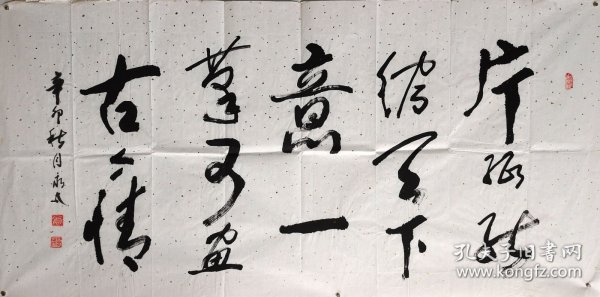 片纸能
缩天下
意一
筆可画
古今情
辛卯秋月
孔夫子旧书网
www.kongfz.com